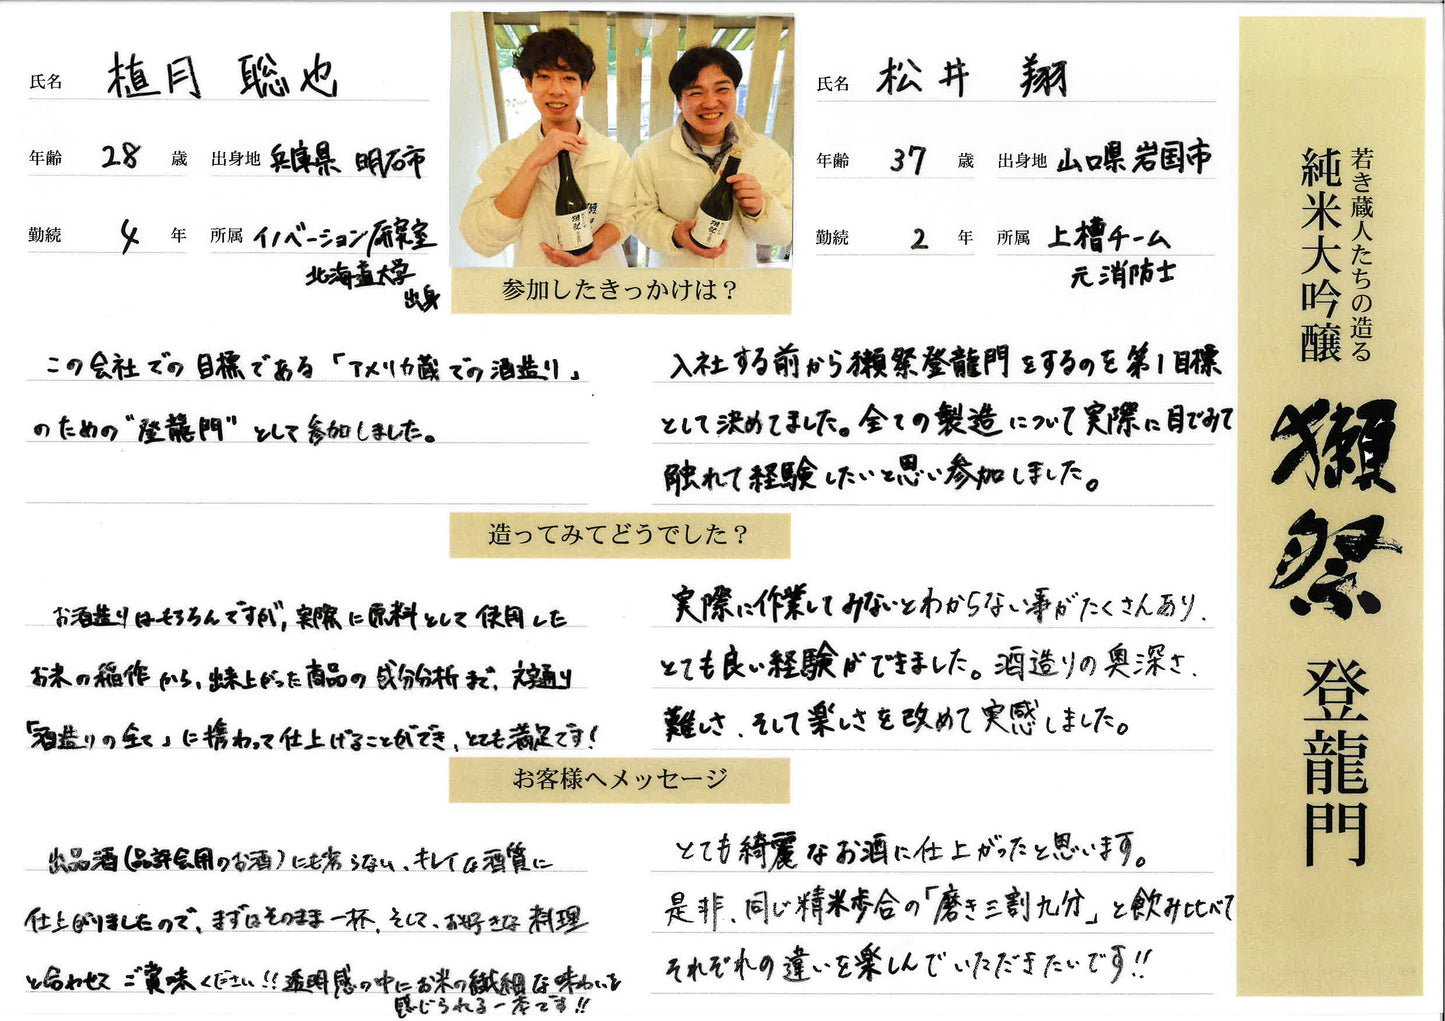 氏名 植月 聡也
年齢 28 歳 出身地 兵庫県 明石市
勤続 4 年 所属 イノベーション研究室
北海道大学
出身
氏名 松井 翔
年齢 37 歳 出身地 山口県岩国市
勤続 2 年 所属 上槽チーム
元消防士
参加したきっかけは?
この会社での目標である「アメリカ蔵での酒造り」
のための"登龍門"として参加しました。
入社する前から獺祭登龍門をするのを第1目標
として決めてました。全ての製造について実際に目でみて
触れて経験したいと思い参加しました。
造ってみてどうでした?
お酒造りはもちろんですが、実際に原料として使用した
お米の稲作から、出来上がった商品の成分分析まで、文字通り
「酒造りの全て」に携わって仕上げることができ、とても満足です!
実際に作業してみないとわからない事がたくさんあり、
とても良い経験ができました。酒造りの奥深さ、
難しさ、そして楽しさを改めて実感しました。
お客様へメッセージ
出品酒(品評会用のお酒)にも劣らない、キレイな酒質に
仕上がりましたので、まずはそのまま一杯、そして、お好きな料理
と合わせてご賞味ください!!透明感の中にお米の繊細な味わいを
感じられる一本です!!
とても綺麗なお酒に仕上がったと思います。
是非、同じ精米歩合の「磨き三割九分」と飲み比べて
それぞれの違いを楽しんでいただきたいです!!
若き蔵人たちの造る
純米大吟醸
獺祭 登龍門